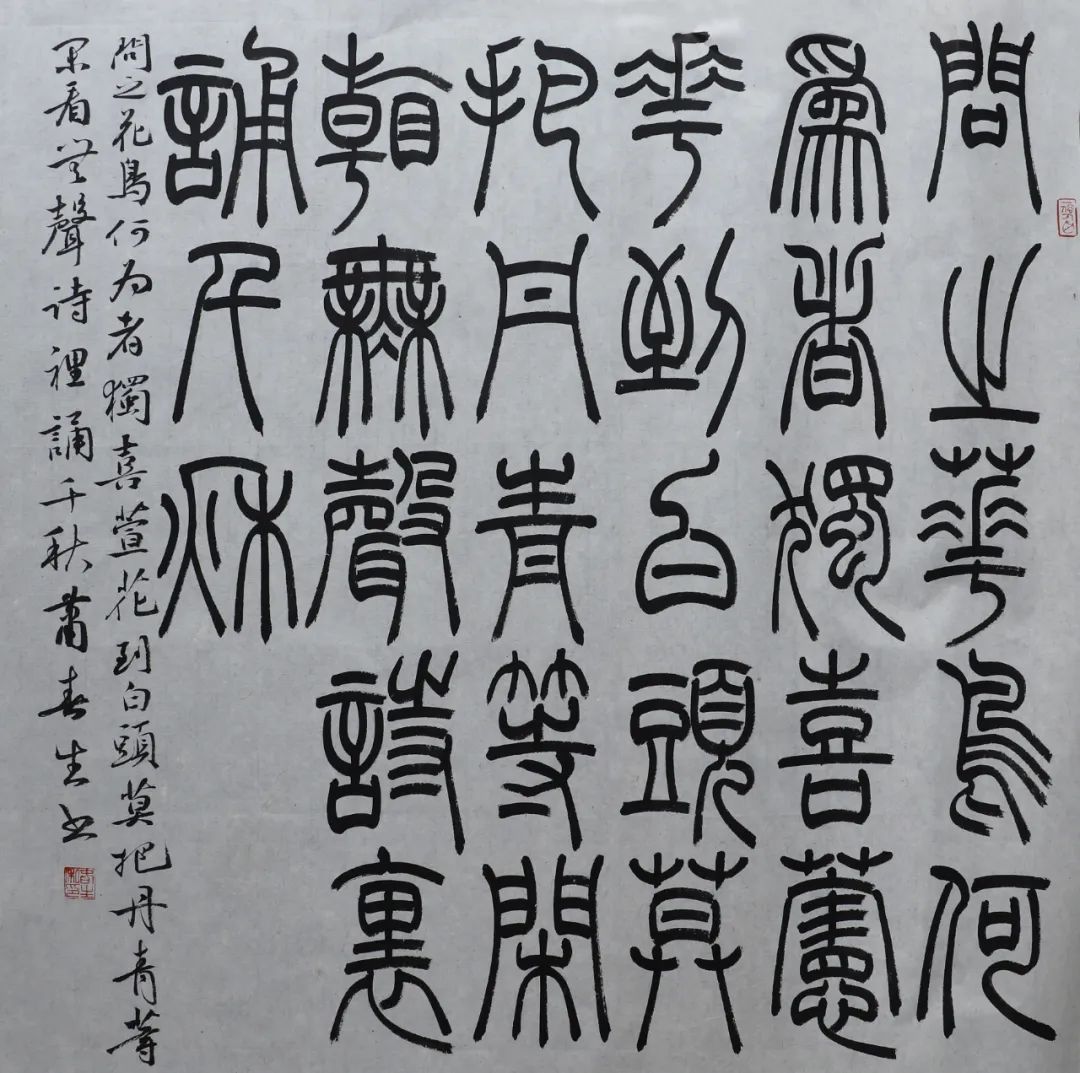 問之華鳥何
爲者獨喜藼
華到白頭莫
把丹青等閑
看無聲詩裏
誦千秋
問之花鳥何为者獨喜萱花到白頭莫把丹青等
閑看無聲诗裡誦千秋蕭春生书